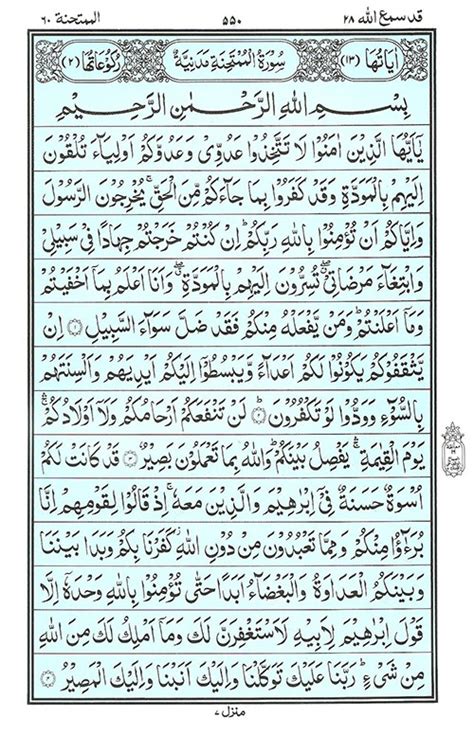 قد سمع الله ۲۸ ۵۵۰ الممتحنة ۶۰
اٰيَاتُهَا (۱۳) سُوْرَةُ الْمُمْتَحِنَةِ مَدَنِيَّةٌ رُكُوْعَاتُهَا (۲)
بِسْمِ اللّٰهِ الرَّحْمٰنِ الرَّحِيْمِ
يٰۤاَيُّهَا الَّذِيْنَ اٰمَنُوْا لَا تَتَّخِذُوْا عَدُوِّىْ وَعَدُوَّكُمْ اَوْلِيَآءَ تُلْقُوْنَ
اِلَيْهِمْ بِالْمَوَدَّةِ وَقَدْ كَفَرُوْا بِمَا جَآءَكُمْ مِّنَ الْحَقِّ ۚ يُخْرِجُوْنَ الرَّسُوْلَ
وَاِيَّاكُمْ اَنْ تُؤْمِنُوْا بِاللّٰهِ رَبِّكُمْ ؕ اِنْ كُنْتُمْ خَرَجْتُمْ جِهَادًا فِىْ سَبِيْلِىْ
وَابْتِغَآءَ مَرْضَاتِىْ ۖ تُسِرُّوْنَ اِلَيْهِمْ بِالْمَوَدَّةِ ۖ وَاَنَا اَعْلَمُ بِمَاۤ اَخْفَيْتُمْ
وَمَاۤ اَعْلَنْتُمْ ؕ وَمَنْ يَّفْعَلْهُ مِنْكُمْ فَقَدْ ضَلَّ سَوَآءَ السَّبِيْلِ ۝۱ اِنْ
يَّثْقَفُوْكُمْ يَكُوْنُوْا لَكُمْ اَعْدَآءً وَّيَبْسُطُوْۤا اِلَيْكُمْ اَيْدِيَهُمْ وَاَلْسِنَتَهُمْ
بِالسُّوْٓءِ وَوَدُّوْا لَوْ تَكْفُرُوْنَ ۝۲ لَنْ تَنْفَعَكُمْ اَرْحَامُكُمْ وَلَاۤ اَوْلَادُكُمْ ۛۚ
يَوْمَ الْقِيٰمَةِ ۛۚ يَفْصِلُ بَيْنَكُمْ ؕ وَاللّٰهُ بِمَا تَعْمَلُوْنَ بَصِيْرٌ ۝۳ قَدْ كَانَتْ لَكُمْ
اُسْوَةٌ حَسَنَةٌ فِىْۤ اِبْرٰهِيْمَ وَالَّذِيْنَ مَعَهٗ ۚ اِذْ قَالُوْا لِقَوْمِهِمْ اِنَّا
بُرَءٰٓؤُا مِنْكُمْ وَمِمَّا تَعْبُدُوْنَ مِنْ دُوْنِ اللّٰهِ ۫ كَفَرْنَا بِكُمْ وَبَدَا بَيْنَنَا
وَبَيْنَكُمُ الْعَدَاوَةُ وَالْبَغْضَآءُ اَبَدًا حَتّٰى تُؤْمِنُوْا بِاللّٰهِ وَحْدَهٗۤ اِلَّا
قَوْلَ اِبْرٰهِيْمَ لِاَبِيْهِ لَاَسْتَغْفِرَنَّ لَكَ وَمَاۤ اَمْلِكُ لَكَ مِنَ اللّٰهِ
مِنْ شَىْءٍ ؕ رَبَّنَا عَلَيْكَ تَوَكَّلْنَا وَاِلَيْكَ اَنَبْنَا وَاِلَيْكَ الْمَصِيْرُ ۝۴
منزل ۷